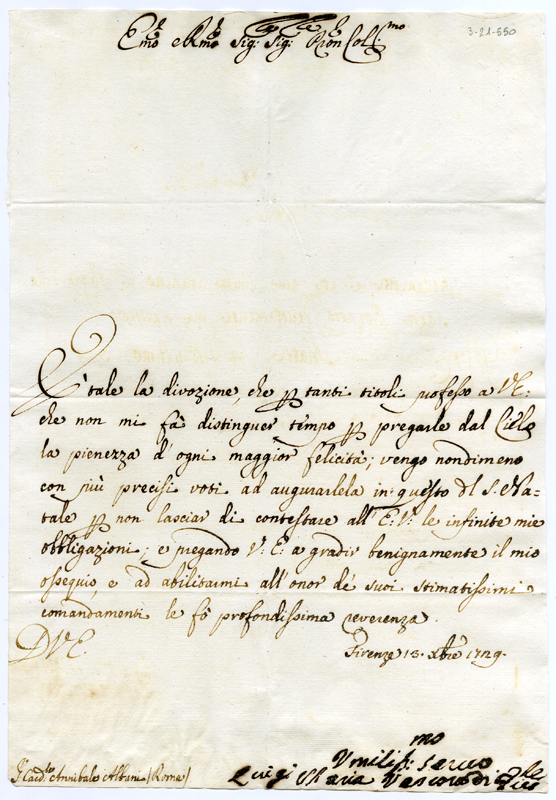 3-21-550
Emo e Rmo Sig: Sig: Pron Col:mo
È tale la divozione che p tanti titoli professo a V.E:
che non mi fà distinguer tempo p pregarle dal Cielo
la pienezza d'ogni maggior felicità; vengo nondimeno
con più precisi voti ad augurarlela in questo del S. Na-
tale p non lasciar di contestare all'E.V: le infinite mie
obbligazioni; e pregando V: E: a gradir benignamente il mio
ossequio, e ad abilitarmi all'onor de' suoi stimatissimi
comandamenti le fò profondissima reverenza.
D.V.E. Firenze 13. Xbre 1729.
Umiliss:mo Servo
Sr. Card:le Annibale Albani /Roma/ Luigi Maria Vescovo di